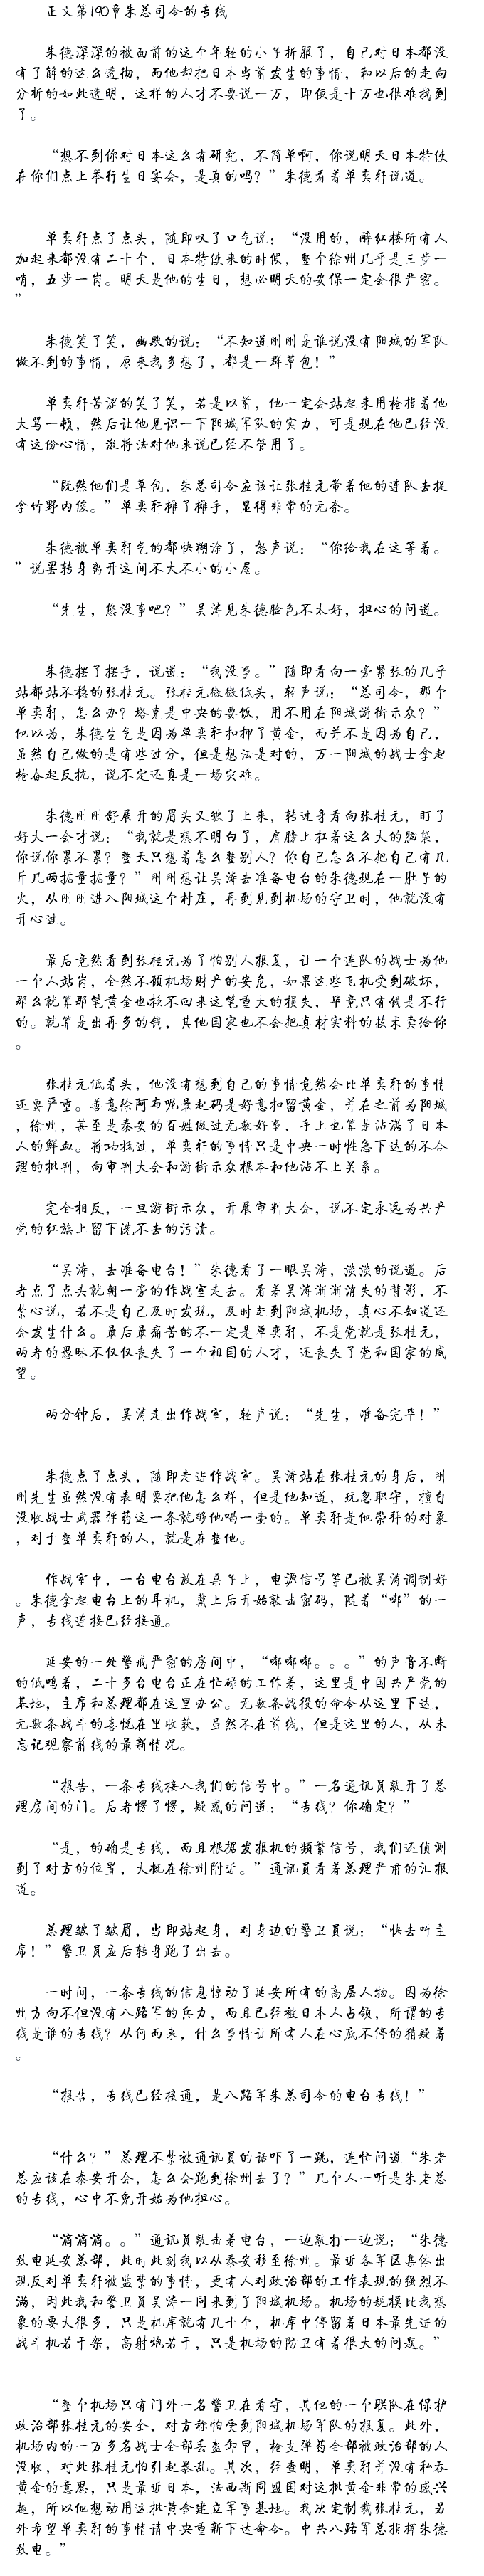 正文第190章朱总司令的专线
朱德深深的被面前的这个年轻的小子折服了，自己对日本都没
有了解的这么透彻，而他却把日本当前发生的事情，和以后的走向
分析的如此透明，这样的人才不要说一万，即便是十万也很难找到
了。
“想不到你对日本这么有研究，不简单啊，你说明天日本特使
在你们点上举行生日宴会，是真的吗？”朱德看着单奕轩说道。
单奕轩点了点头，随即叹了口气说：“没用的，醉红楼所有人
加起来都没有二十个，日本特使来的时候，整个徐州几乎是三步一
哨，五步一岗。明天是他的生日，想必明天的安保一定会很严密。
”
朱德笑了笑，幽默的说：“不知道刚刚是谁说没有阳城的军队
做不到的事情，原来我多想了，都是一群草包！”
单奕轩苦涩的笑了笑，若是以前，他一定会站起来用枪指着他
大骂一顿，然后让他见识一下阳城军队的实力，可是现在他已经没
有这份心情，激将法对他来说已经不管用了。
“既然他们是草包，朱总司令应该让张桂元带着他的连队去捉
拿竹野内俊。”单奕轩摊了摊手，显得非常的无奈。
朱德被单奕轩气的都快糊涂了，怒声说：“你给我在这等着。
”说罢转身离开这间不大不小的小屋。
“先生，您没事吧？”吴涛见朱德脸色不太好，担心的问道。
朱德摆了摆手，说道：“我没事。”随即看向一旁紧张的几乎
站都站不稳的张桂元。张桂元微微低头，轻声说：“总司令，那个
单奕轩，怎么办？塔克是中央的要饭，用不用在阳城游街示众？”
他以为，朱德生气是因为单奕轩扣押了黄金，而并不是因为自己，
虽然自己做的是有些过分，但是想法是对的，万一阳城的战士拿起
枪奋起反抗，说不定还真是一场灾难。
朱德刚刚舒展开的眉头又皱了上来，转过身看向张桂元，盯了
好大一会才说：“我就是想不明白了，肩膀上扛着这么大的脑袋，
你说你累不累？整天只想着怎么整别人？你自己怎么不把自己有几
斤几两掂量掂量？”刚刚想让吴涛去准备电台的朱德现在一肚子的
火，从刚刚进入阳城这个村庄，再到见到机场的守卫时，他就没有
开心过。
最后竟然看到张桂元为了怕别人报复，让一个连队的战士为他
一个人站岗，全然不顾机场财产的安危，如果这些飞机受到破坏，
那么就算那笔黄金也换不回来这笔重大的损失，毕竟只有钱是不行
的。就算是出再多的钱，其他国家也不会把真材实料的技术卖给你
。
张桂元低着头，他没有想到自己的事情竟然会比单奕轩的事情
还要严重。善意徐阿布呢最起码是好意扣留黄金，并在之前为阳城
，徐州，甚至是泰安的百姓做过无数好事，手上也算是沾满了日本
人的鲜血。将功抵过，单奕轩的事情只是中央一时性急下达的不合
理的批判，向审判大会和游街示众根本和他沾不上关系。
完全相反，一旦游街示众，开展审判大会，说不定永远为共产
党的红旗上留下洗不去的污渍。
“吴涛，去准备电台！”朱德看了一眼吴涛，淡淡的说道。后
者点了点头就朝一旁的作战室走去。看着吴涛渐渐消失的背影，不
禁心说，若不是自己及时发现，及时赶到阳城机场，真心不知道还
会发生什么。最后最痛苦的不一定是单奕轩，不是党就是张桂元，
两者的愚昧不仅仅丧失了一个祖国的人才，还丧失了党和国家的威
望。
两分钟后，吴涛走出作战室，轻声说：“先生，准备完毕！”
朱德点了点头，随即走进作战室。吴涛站在张桂元的身后，刚
刚先生虽然没有表明要把他怎么样，但是他知道，玩忽职守，擅自
没收战士武器弹药这一条就够他喝一壶的。单奕轩是他崇拜的对象
，对于整单奕轩的人，就是在整他。
作战室中，一台电台放在桌子上，电源信号等已被吴涛调制好
。朱德拿起电台上的耳机，戴上后开始敲击密码，随着“嘟”的一
声，专线连接已经接通。
延安的一处警戒严密的房间中，“嘟嘟嘟。。。”的声音不断
的低鸣着，二十多台电台正在忙碌的工作着，这里是中国共产党的
基地，主席和总理都在这里办公。无数条战役的命令从这里下达，
无数条战斗的喜悦在里收获，虽然不在前线，但是这里的人，从未
忘记观察前线的最新情况。
“报告，一条专线接入我们的信号中。”一名通讯員敲开了总
理房间的门。后者愣了愣，疑惑的问道：“专线？你确定？”
“是，的确是专线，而且根据发报机的频繁信号，我们还侦测
到了对方的位置，大概在徐州附近。”通讯員看着总理严肃的汇报
道。
总理皱了皱眉，当即站起身，对身边的警卫員说：“快去叫主
席！”警卫員应后转身跑了出去。
一时间，一条专线的信息惊动了延安所有的高层人物。因为徐
州方向不但没有八路军的兵力，而且已经被日本人占领，所谓的专
线是谁的专线？从何而来，什么事情让所有人在心底不停的猜疑着
。
“报告，专线已经接通，是八路军朱总司令的电台专线！”
“什么？”总理不禁被通讯員的话吓了一跳，连忙问道“朱老
总应该在泰安开会，怎么会跑到徐州去了？”几个人一听是朱老总
的专线，心中不免开始为他担心。
“滴滴滴。。”通讯員敲击着电台，一边敲打一边说：“朱德
致电延安总部，此时此刻我以从泰安移至徐州。最近各军区集体出
现反对单奕轩被监禁的事情，更有人对政治部的工作表现的强烈不
满，因此我和警卫員吴涛一同来到了阳城机场。机场的规模比我想
象的要大很多，只是机库就有几十个，机库中停留着日本最先进的
战斗机若干架，高射炮若干，只是机场的防卫有着很大的问题。”
“整个机场只有门外一名警卫在看守，其他的一个联队在保护
政治部张桂元的安全，对方称怕受到阳城机场军队的报复。此外，
机场内的一万多名战士全部丢盔卸甲，枪支弹药全部被政治部的人
没收，对此张桂元怕引起暴乱。其次，经查明，单奕轩并没有私吞
黄金的意思，只是最近日本，法西斯同盟国对这批黄金非常的感兴
趣，所以他想动用这批黄金建立军事基地。我决定制裁张桂元，另
外希望单奕轩的事情请中央重新下达命令。中共八路军总指挥朱德
致电。”